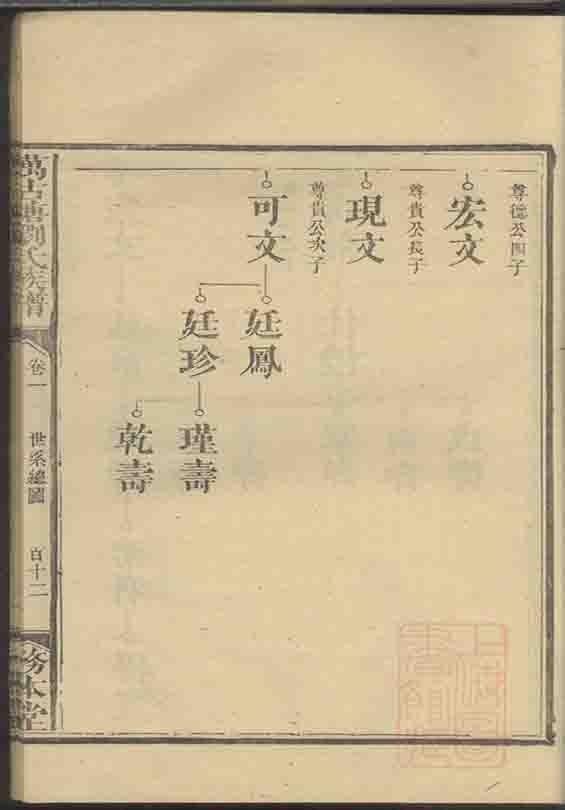 尊德公四子
宏文
尊貴公長子
現文
尊貴公次子
可文
廷鳳
廷珍
瑾壽
乾壽
劉氏族譜
卷一
世系總圖
百十二
務本堂